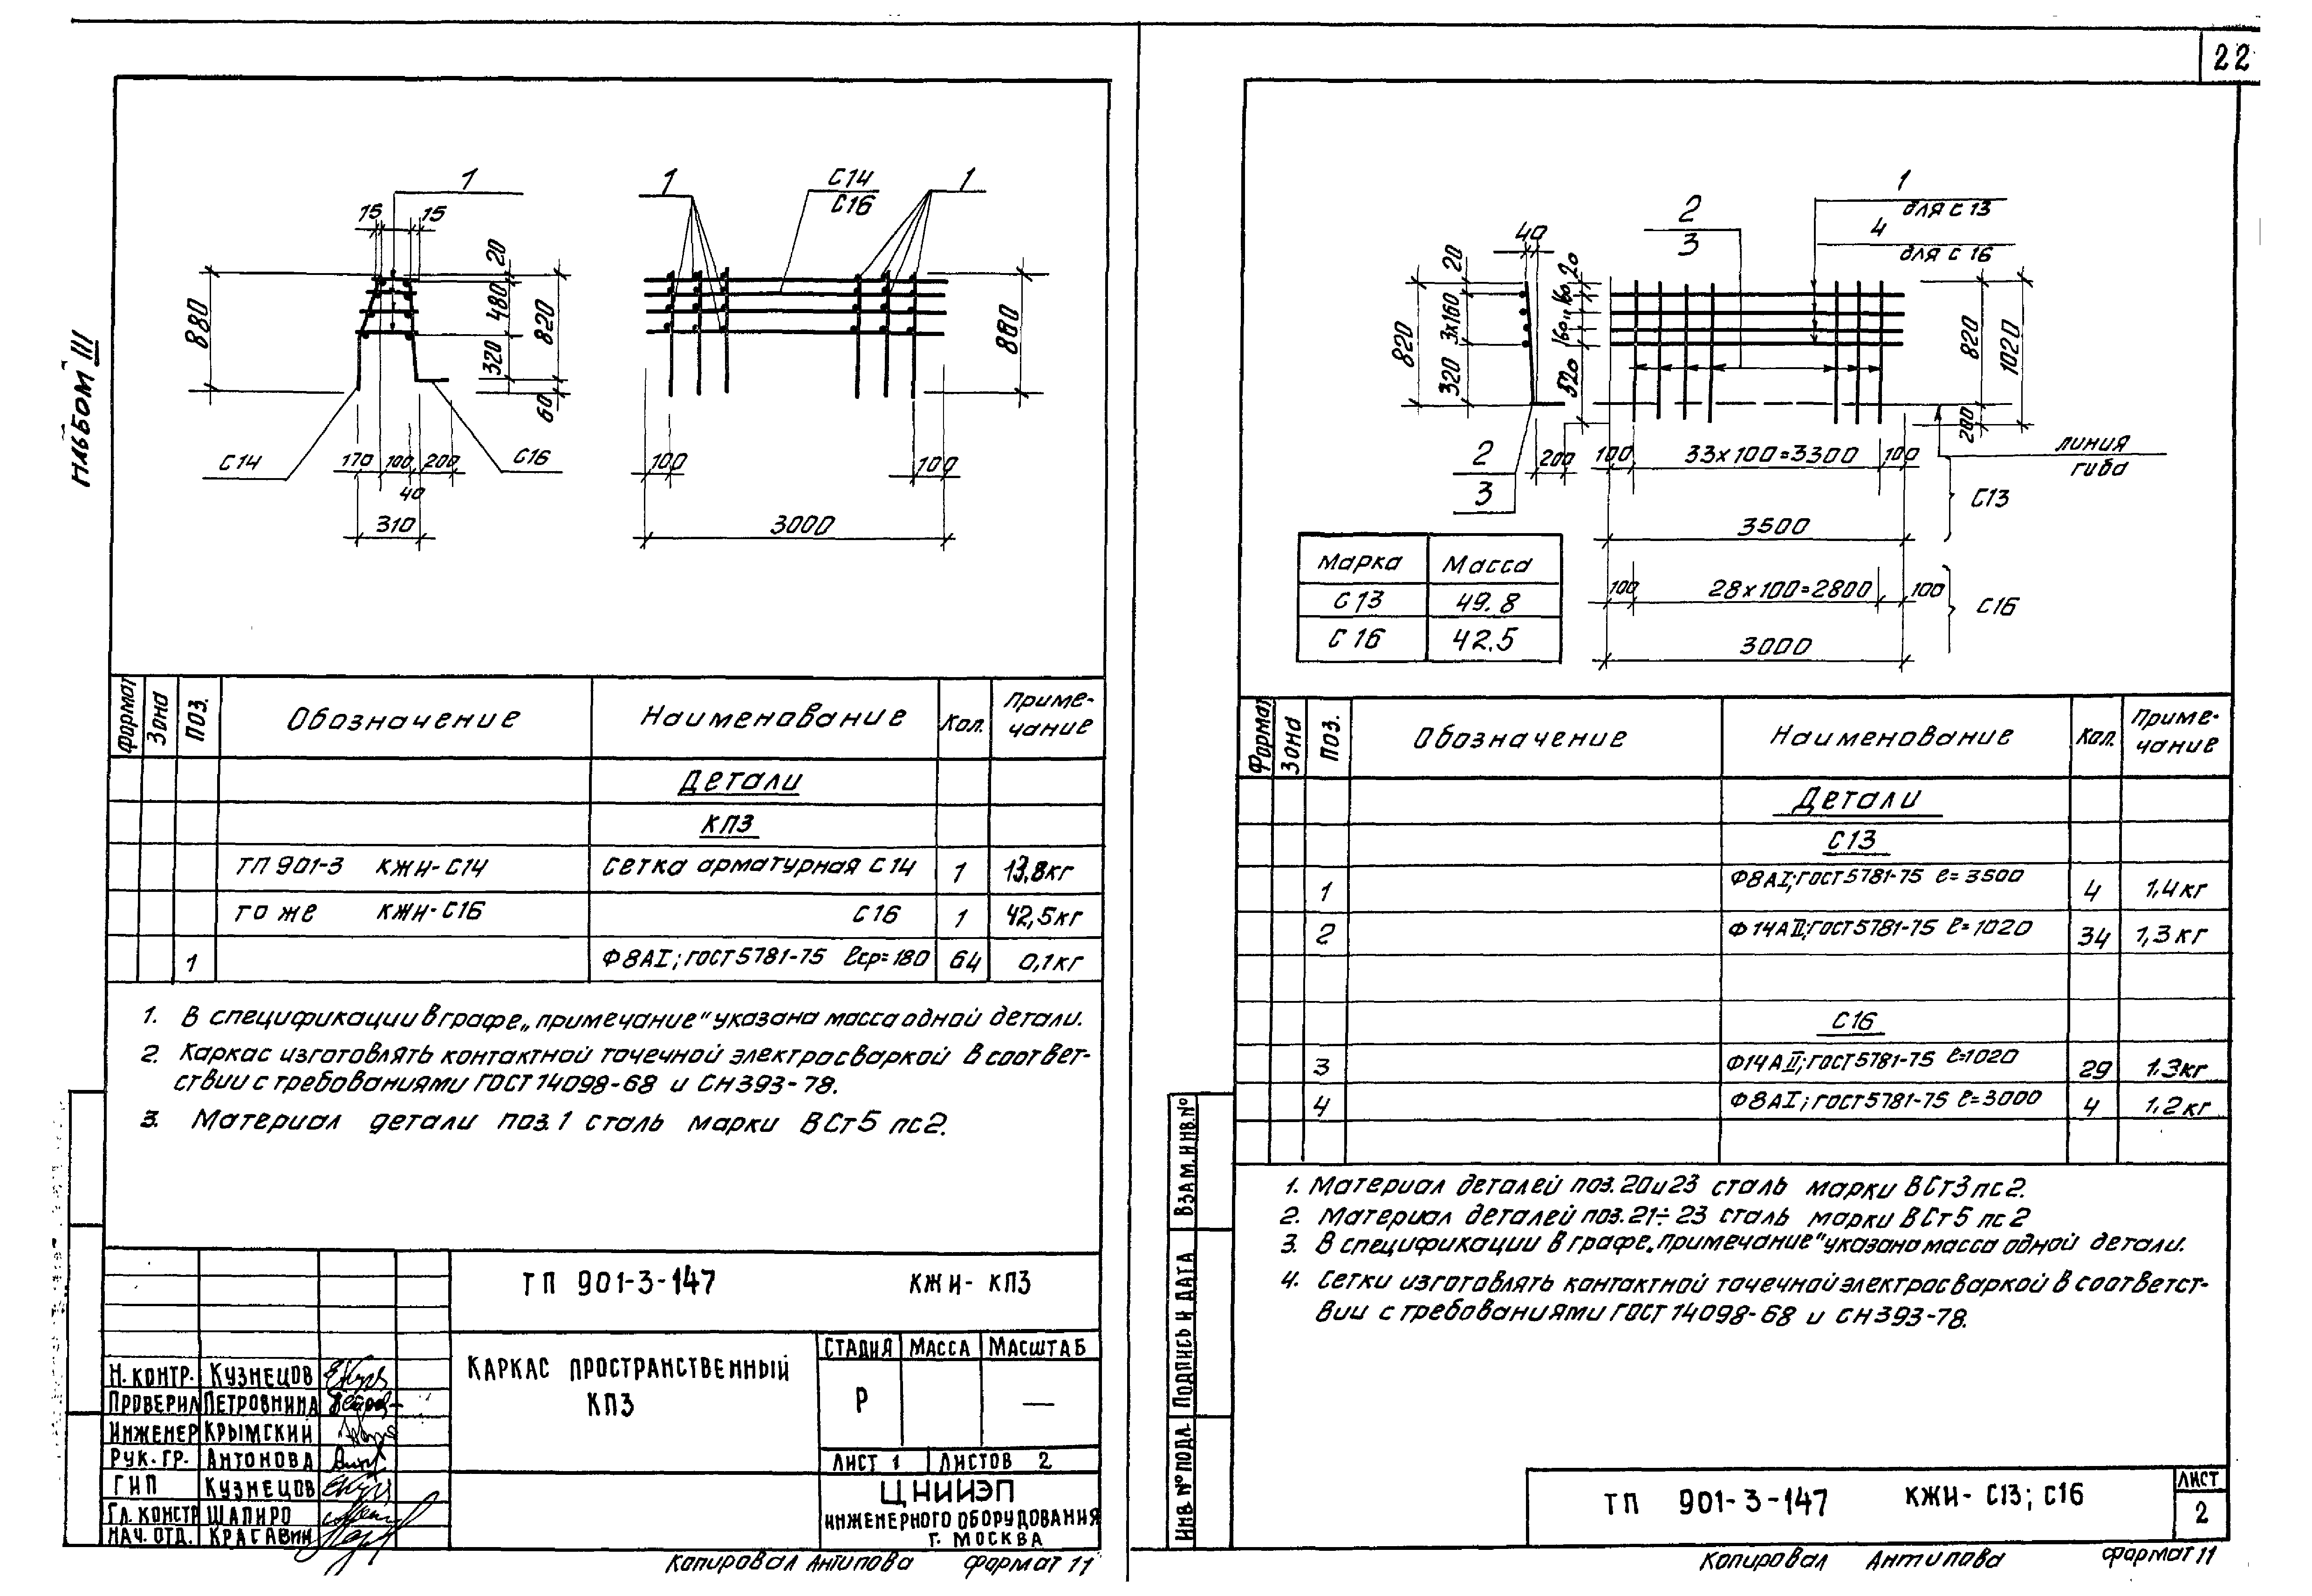 22
Альбом III
1
15 15
20
480
820
320
60
880
С14
170 100 200
40
310
С16
1
С14
С16
1
880
100 100
3000
Формат Зона Поз. Обозначение Наименование Кол. Приме-
чание
Детали
КП3
ТП 901-3 КЖИ-С14 Сетка арматурная С14 1 13,8кг
то же КЖИ-С16 С16 1 42,5кг
1 Ф8АI; ГОСТ 5781-75 ℓср=180 64 0,1кг
1. В спецификации в графе „примечание" указана масса одной детали.
2. Каркас изготовлять контактной точечной электросваркой в соответ-
ствии с требованиями ГОСТ 14098-68 и СН 393-78.
3. Материал детали поз. 1 сталь марки ВСт5 пс2.
ТП 901-3-147 КЖИ- КП3
Каркас пространственный
КП3
Стадия Масса Масштаб
Р —
Лист 1 Листов 2
ЦНИИЭП
инженерного оборудования
г. Москва
Н. контр. Кузнецов
Проверил Петровнина
Инженер Крымский
Рук. гр. Антонова
ГИП Кузнецов
Гл. констр Шапиро
Нач. отд. Крагавин
Копировал Антипова Формат 11
40
20
3х160
320
820
2
3
200
2
3
1
для С13
4
для С16
20
160
160
520
820
200
1020
линия
гиба
100 33х100=3300 100
3500
С13
100 28х100=2800 100
3000
С16
Марка Масса
С13 49.8
С16 42.5
Формат Зона Поз. Обозначение Наименование Кол. Приме-
чание
Детали
С13
1 Ф8АI; ГОСТ 5781-75 ℓ=3500 4 1,4кг
2 Ф14АII; ГОСТ 5781-75 ℓ=1020 34 1,3кг
С16
3 Ф14АII; ГОСТ 5781-75 ℓ=1020 29 1.3кг
4 Ф8АI; ГОСТ 5781-75 ℓ=3000 4 1,2кг
1. Материал деталей поз. 20и23 сталь марки ВСт3пс2.
2. Материал деталей поз. 21÷23 сталь марки ВСт5 пс2
3. В спецификации в графе „примечание" указана масса одной детали.
4. Сетки изготовлять контактной точечной электросваркой в соответст-
вии с требованиями ГОСТ 14098-68 и СН 393-78.
Взам. инв. №
Подпись и дата
Инв. № подл.
ТП 901-3-147 КЖИ- С13; С16
Лист
2
Копировал Антипова Формат 11